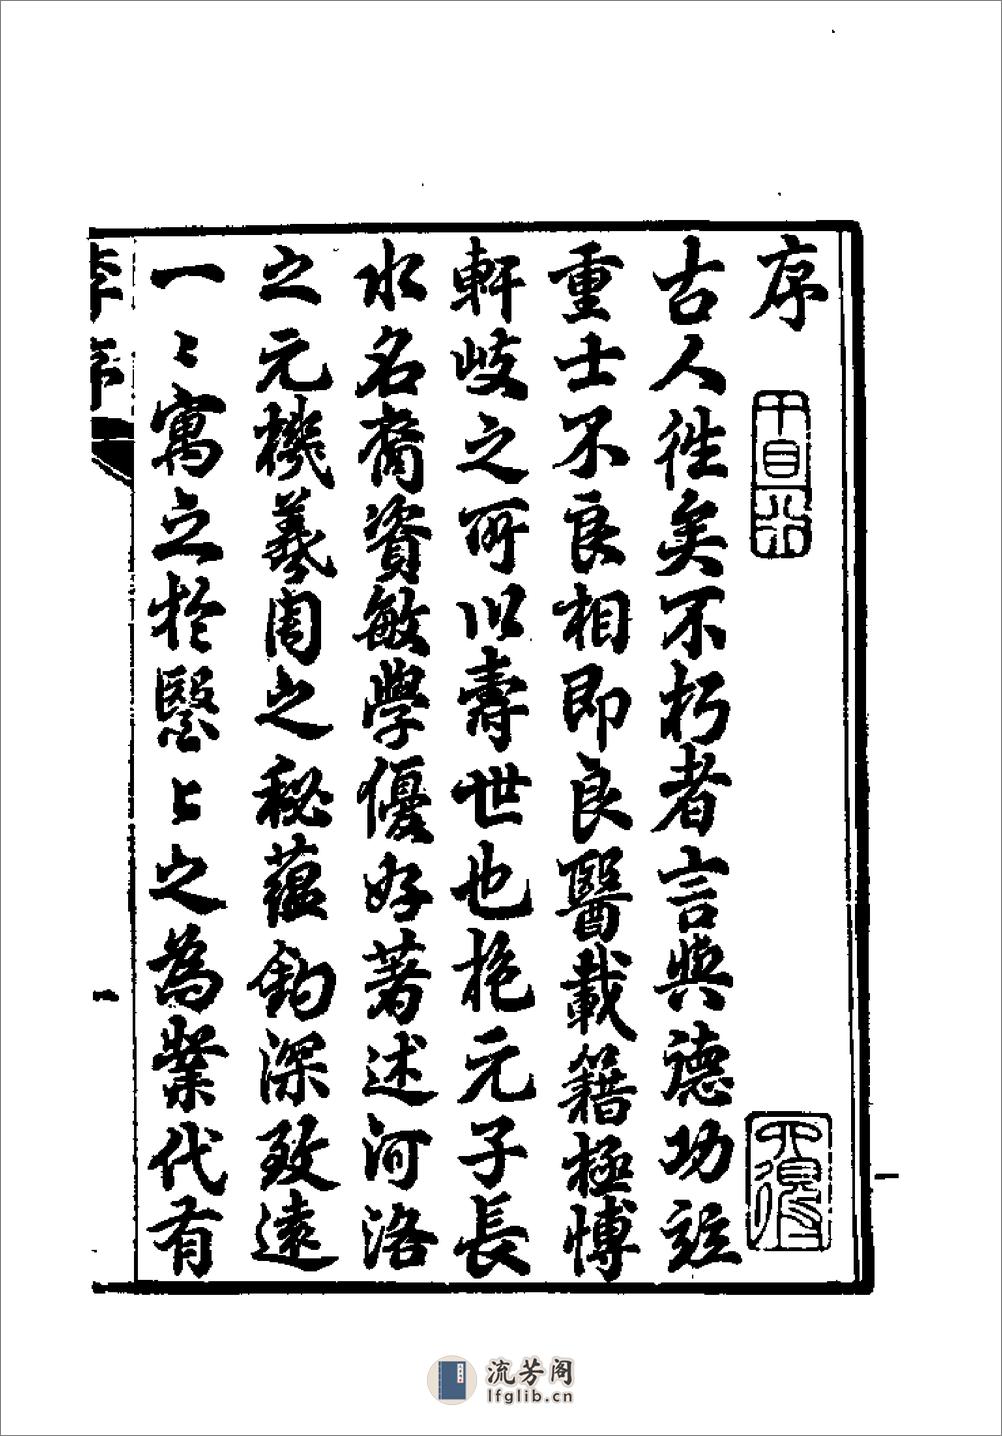 序
古人徃矣不朽者言與德功竝
重士不良相即良醫載籍極博
軒岐之所以壽世也抱元子長
水名裔資敏學優好著述河洛
之元機羲周之秘蘊鈎深致遠
一〻寓之於醫〻之為業代有
李序
一
流芳阁
lfglib.cn